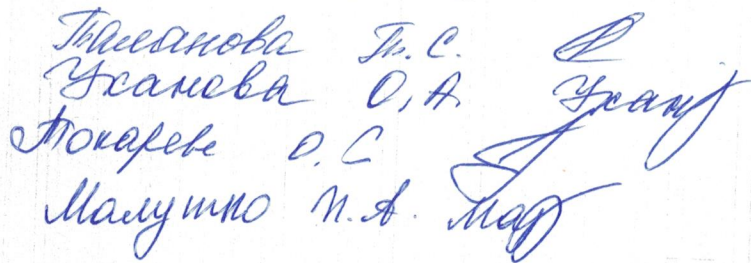 Таланова Т. С.
Уханова О, А. Ухан
Токарева О. С
Малушко И. А. Мар